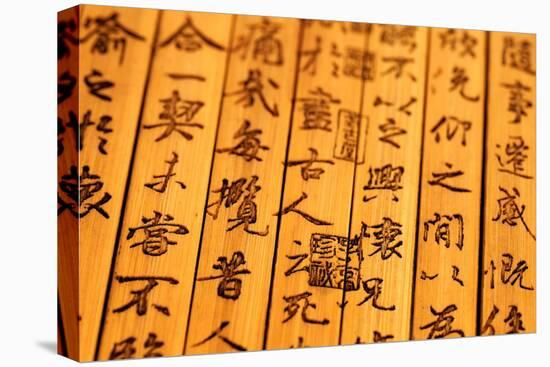 隨事遷感慨係
欣俛仰之間以為
不以之興懷況
於盡古人云死
痛哉每攬昔人
合一契未嘗不臨
喻之於懷